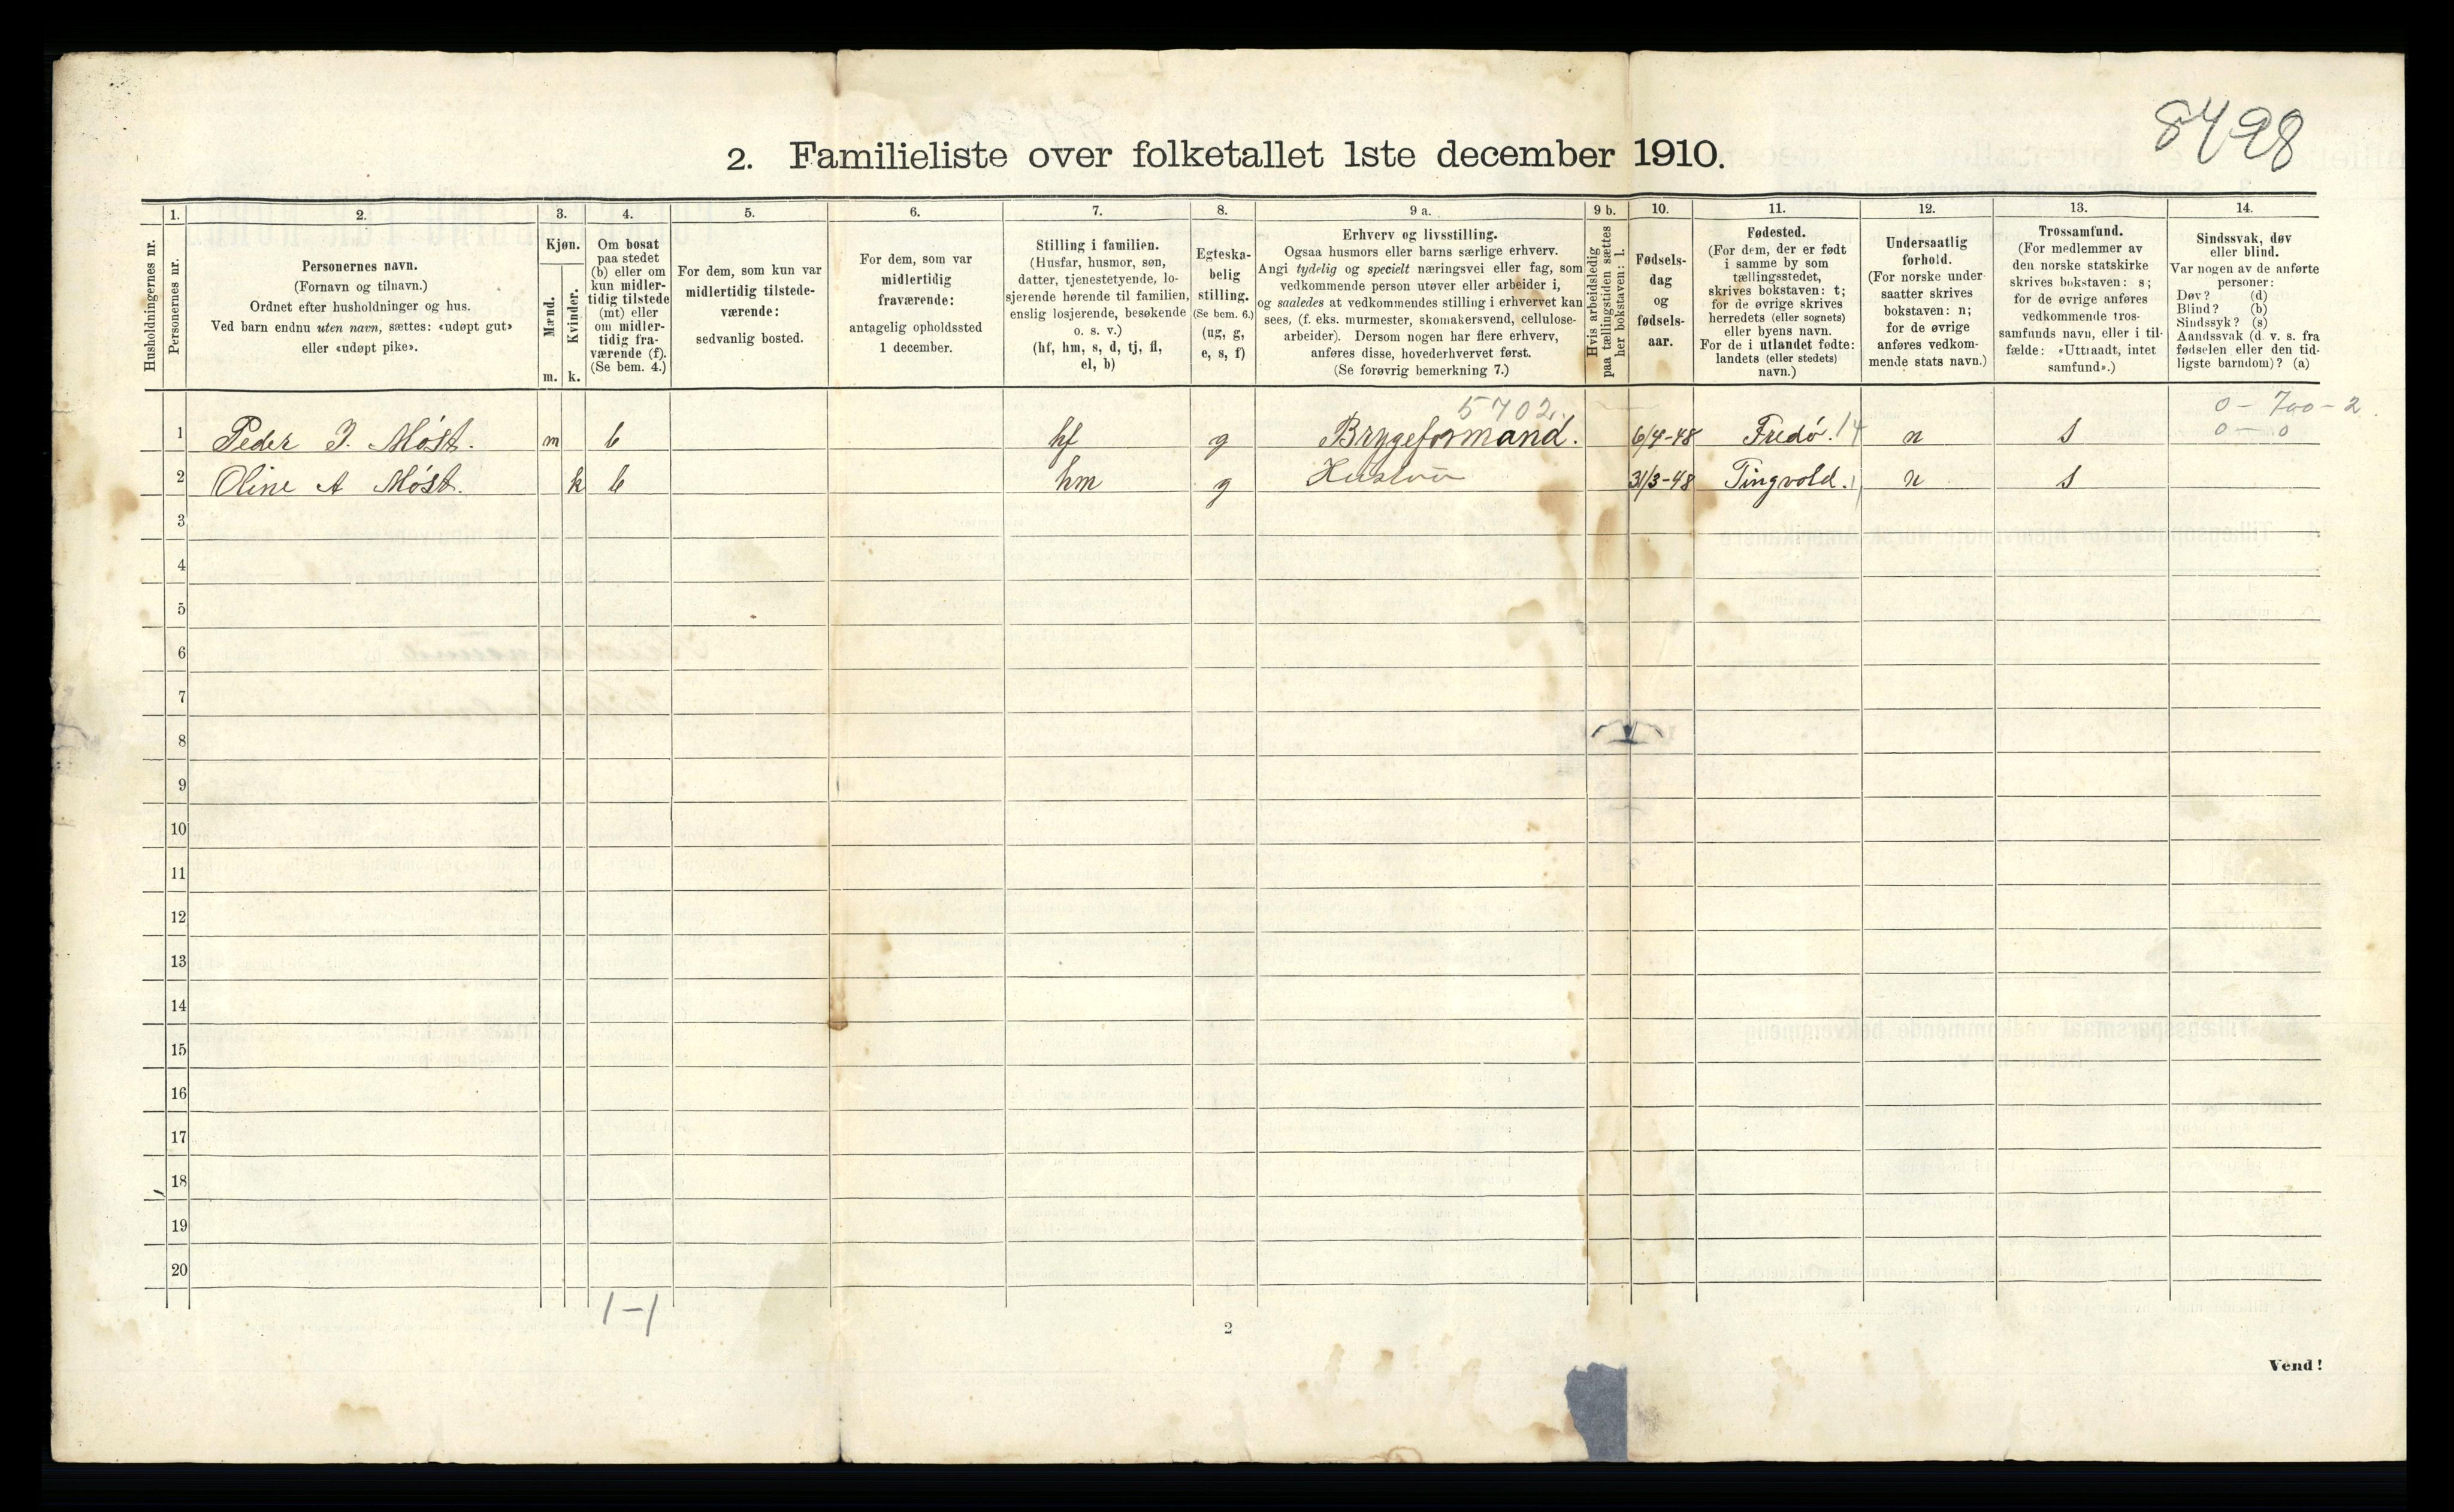 8498
2. Familieliste over folketallet 1ste december 1910.
1. 2. 3. 4. 5. 6. 7. 8. 9 a. 9 b. 10. 11. 12. 13. 14.
Husholdningernes nr.
Personernes nr.
Personernes navn.
(Fornavn og tilnavn.)
Ordnet efter husholdninger og hus.
Ved barn endnu uten navn, sættes: «udøpt gut»
eller «udøpt pike».
Kjøn.
Mænd.
Kvinder.
m. k.
Om bosat
paa stedet
(b) eller om
kun midler-
tidig tilstede
(mt) eller
om midler-
tidig fra-
værende (f).
(Se bem. 4.)
For dem, som kun var
midlertidig tilstede-
værende:
sedvanlig bosted.
For dem, som var
midlertidig
fraværende:
antagelig opholdssted
1 december.
Stilling i familien.
(Husfar, husmor, søn,
datter, tjenestetyende, lo-
sjerende hørende til familien,
enslig losjerende, besøkende
o. s. v.)
(hf, hm, s, d, tj, fl,
el, b)
Egteska-
belig
stilling.
(Se bem. 6.)
(ug, g,
e, s, f)
Erhverv og livsstilling.
Ogsaa husmors eller barns særlige erhverv.
Angi tydelig og specielt næringsvei eller fag, som
vedkommende person utøver eller arbeider i,
og saaledes at vedkommendes stilling i erhvervet kan
sees, (f. eks. murmester, skomakersvend, cellulose-
arbeider). Dersom nogen har flere erhverv,
anføres disse, hovederhvervet først.
(Se forøvrig bemerkning 7.)
Hvis arbeidsledig
paa tællingstiden sættes
her bokstaven: l.
Fødsels-
dag
og
fødsels-
aar.
Fødested.
(For dem, der er født
i samme by som
tællingsstedet,
skrives bokstaven: t;
for de øvrige skrives
herredets (eller sognets)
eller byens navn.
For de i utlandet fødte:
landets (eller stedets)
navn.)
Undersaatlig
forhold.
(For norske under-
saatter skrives
bokstaven: n;
for de øvrige
anføres vedkom-
mende stats navn.)
Trossamfund.
(For medlemmer av
den norske statskirke
skrives bokstaven: s;
for de øvrige anføres
vedkommende tros-
samfunds navn, eller i til-
fælde: «Uttraadt, intet
samfund».)
Sindssvak, døv
eller blind.
Var nogen av de anførte
personer:
Døv? (d)
Blind? (b)
Sindssyk? (s)
Aandssvak (d. v. s. fra
fødselen eller den tid-
ligste barndom)? (a)
5702. 0 - 700 - 2
1 Peder J. Møst. m b hf g Bryggeformand. 6/4-48 Fredø. 14 n s 0 - 0
2 Oline A Møst. k b hm g Hustru 31/3-48 Tingvold. n s
3
4
5
6
7
8
9
10
11
12
13
14
15
16
17
18
19
20
1-1
2
Vend!